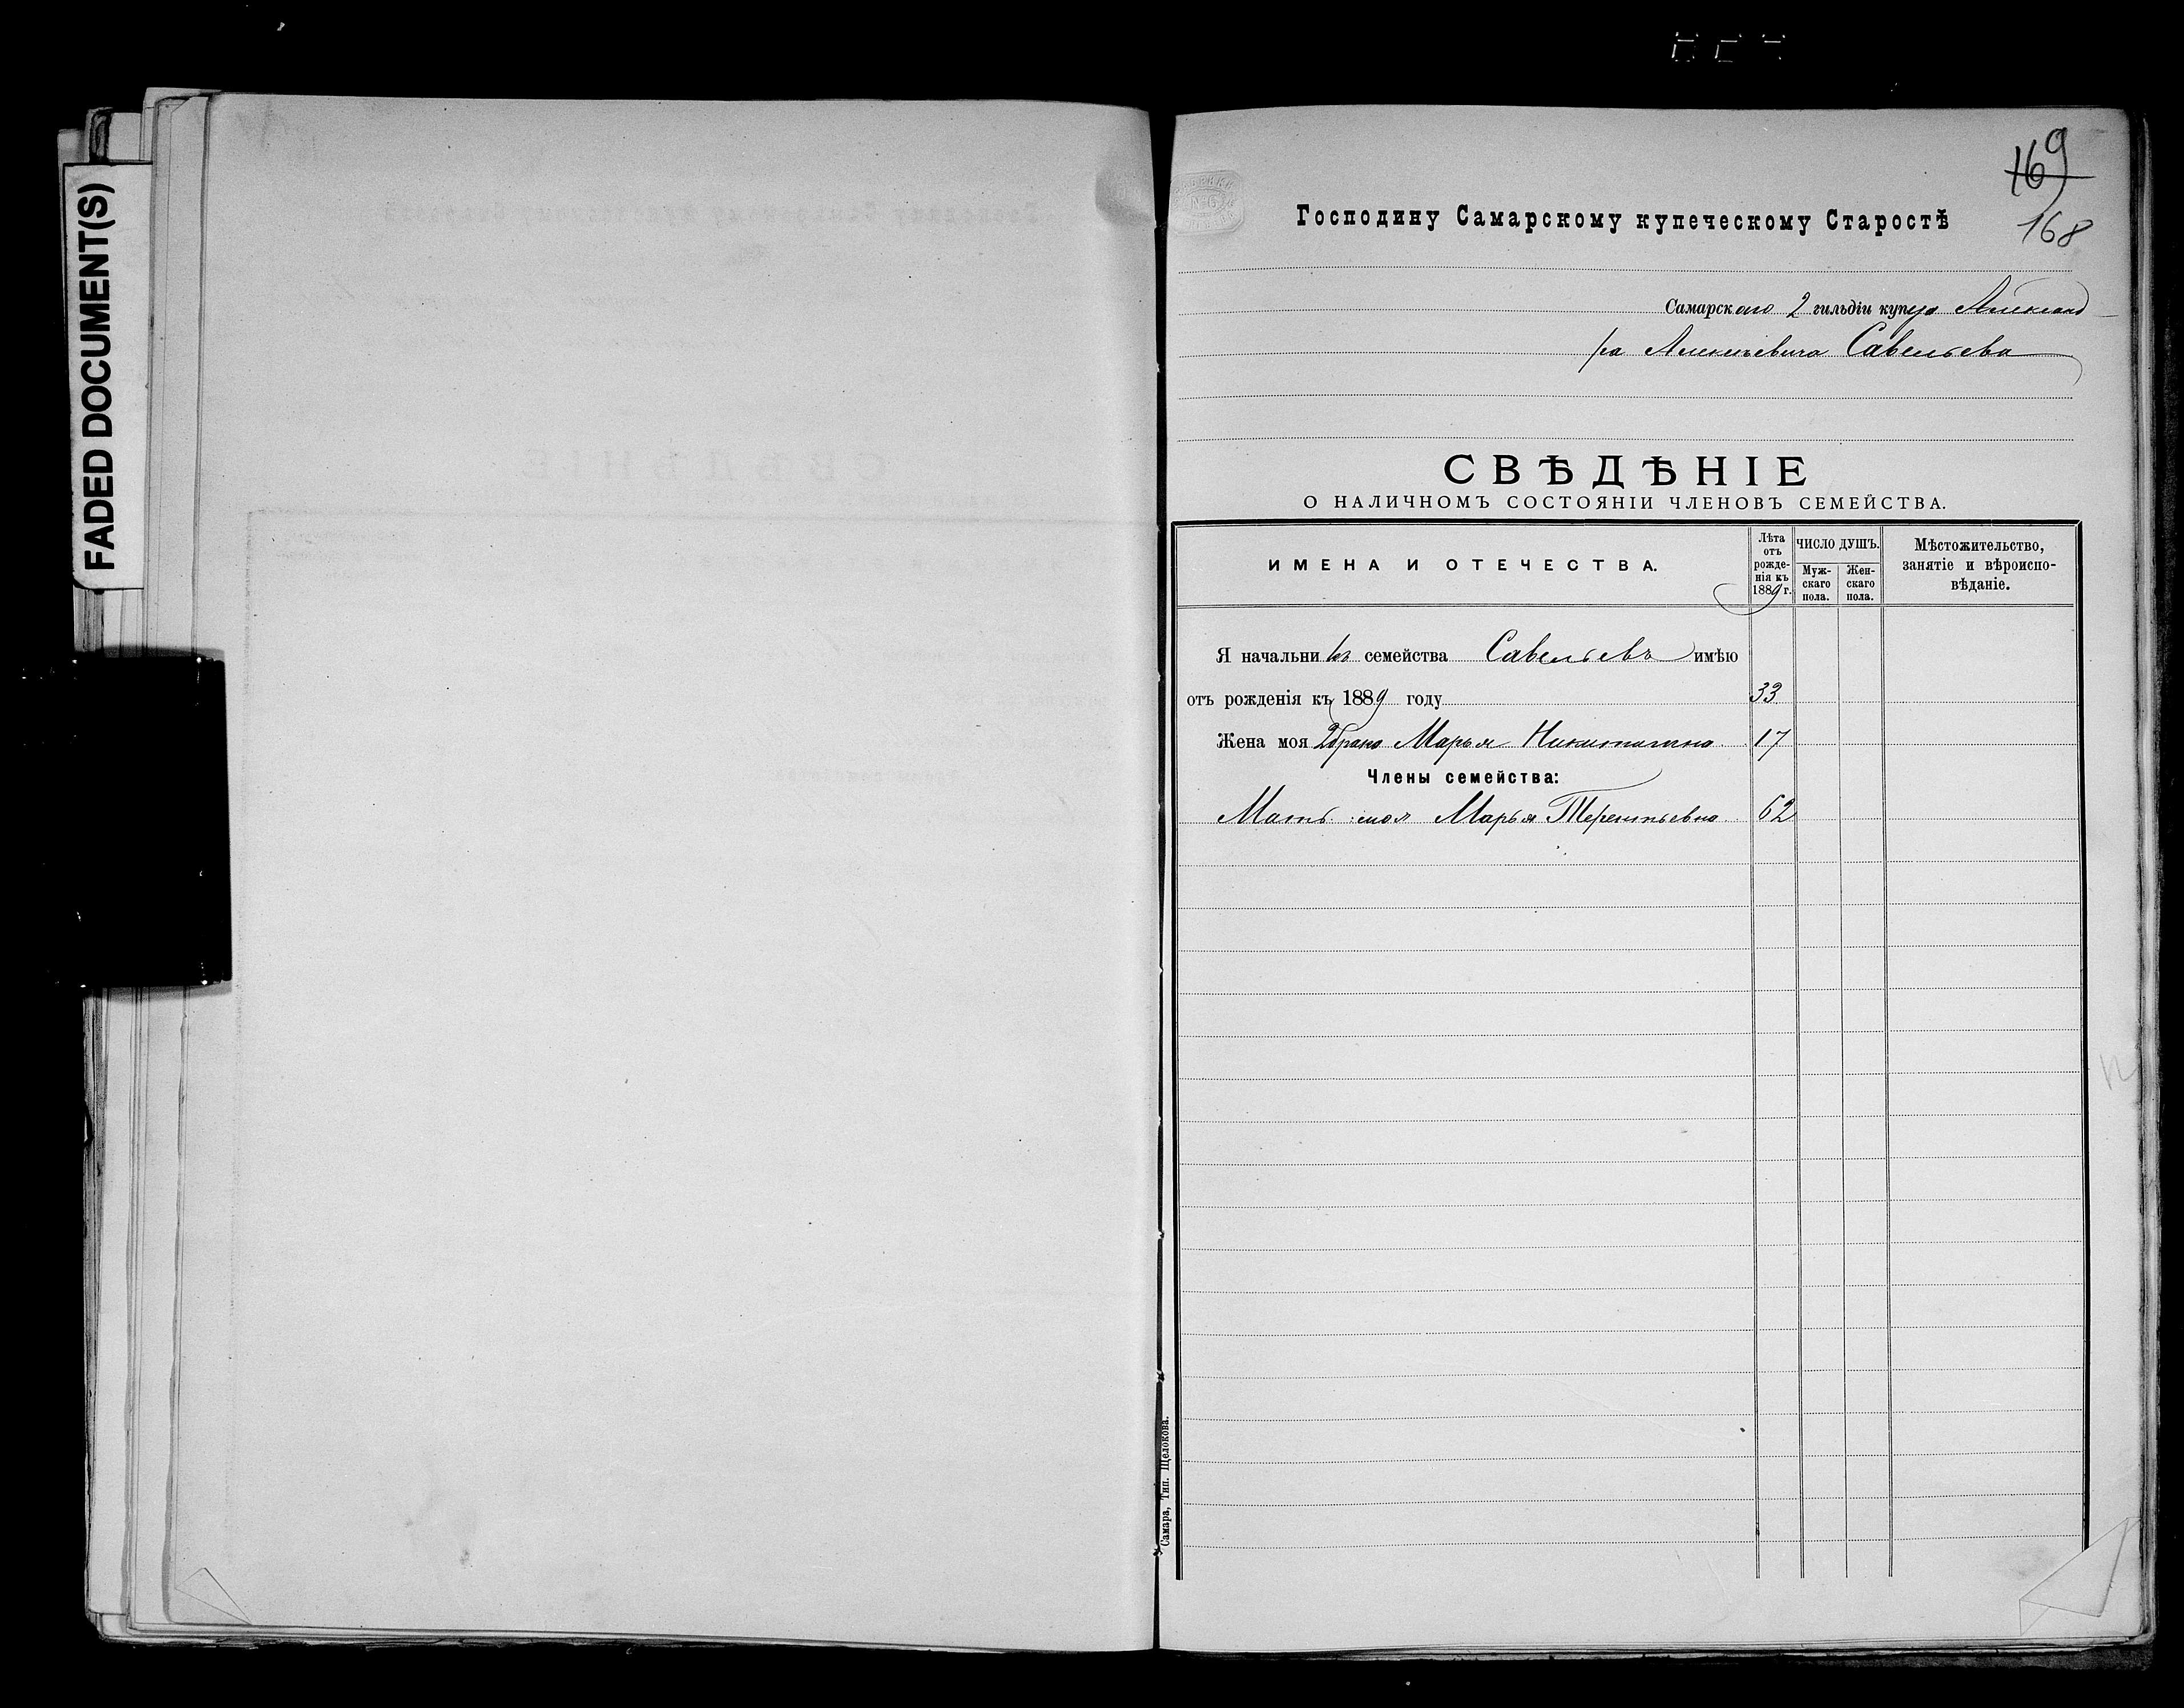 FADED DOCUMENT(S)
169
168
Господину Самарскому купеческому Старостѣ
Самарскаго 2 гильдіи купца Александ
ра Алексѣевича Савельева
СВѢДѢНІЕ
О НАЛИЧНОМЪ СОСТОЯНІИ ЧЛЕНОВЪ СЕМЕЙСТВА.
ИМЕНА И ОТЕЧЕСТВА.
Лѣта отъ рожденія къ 1889 г.
ЧИСЛО ДУШЪ.
Мужскаго пола.
Женскаго пола.
Мѣстожительство, занятіе и вѣроисповѣданіе.
Я начальникъ семейства Савельевъ имѣю
отъ рожденія къ 1889 году 33
Жена моя 2 брака Марья Никитишна 17
Члены семейства:
Мать моя Марья Терентьевна 62
Самара, Тип. Щелокова.